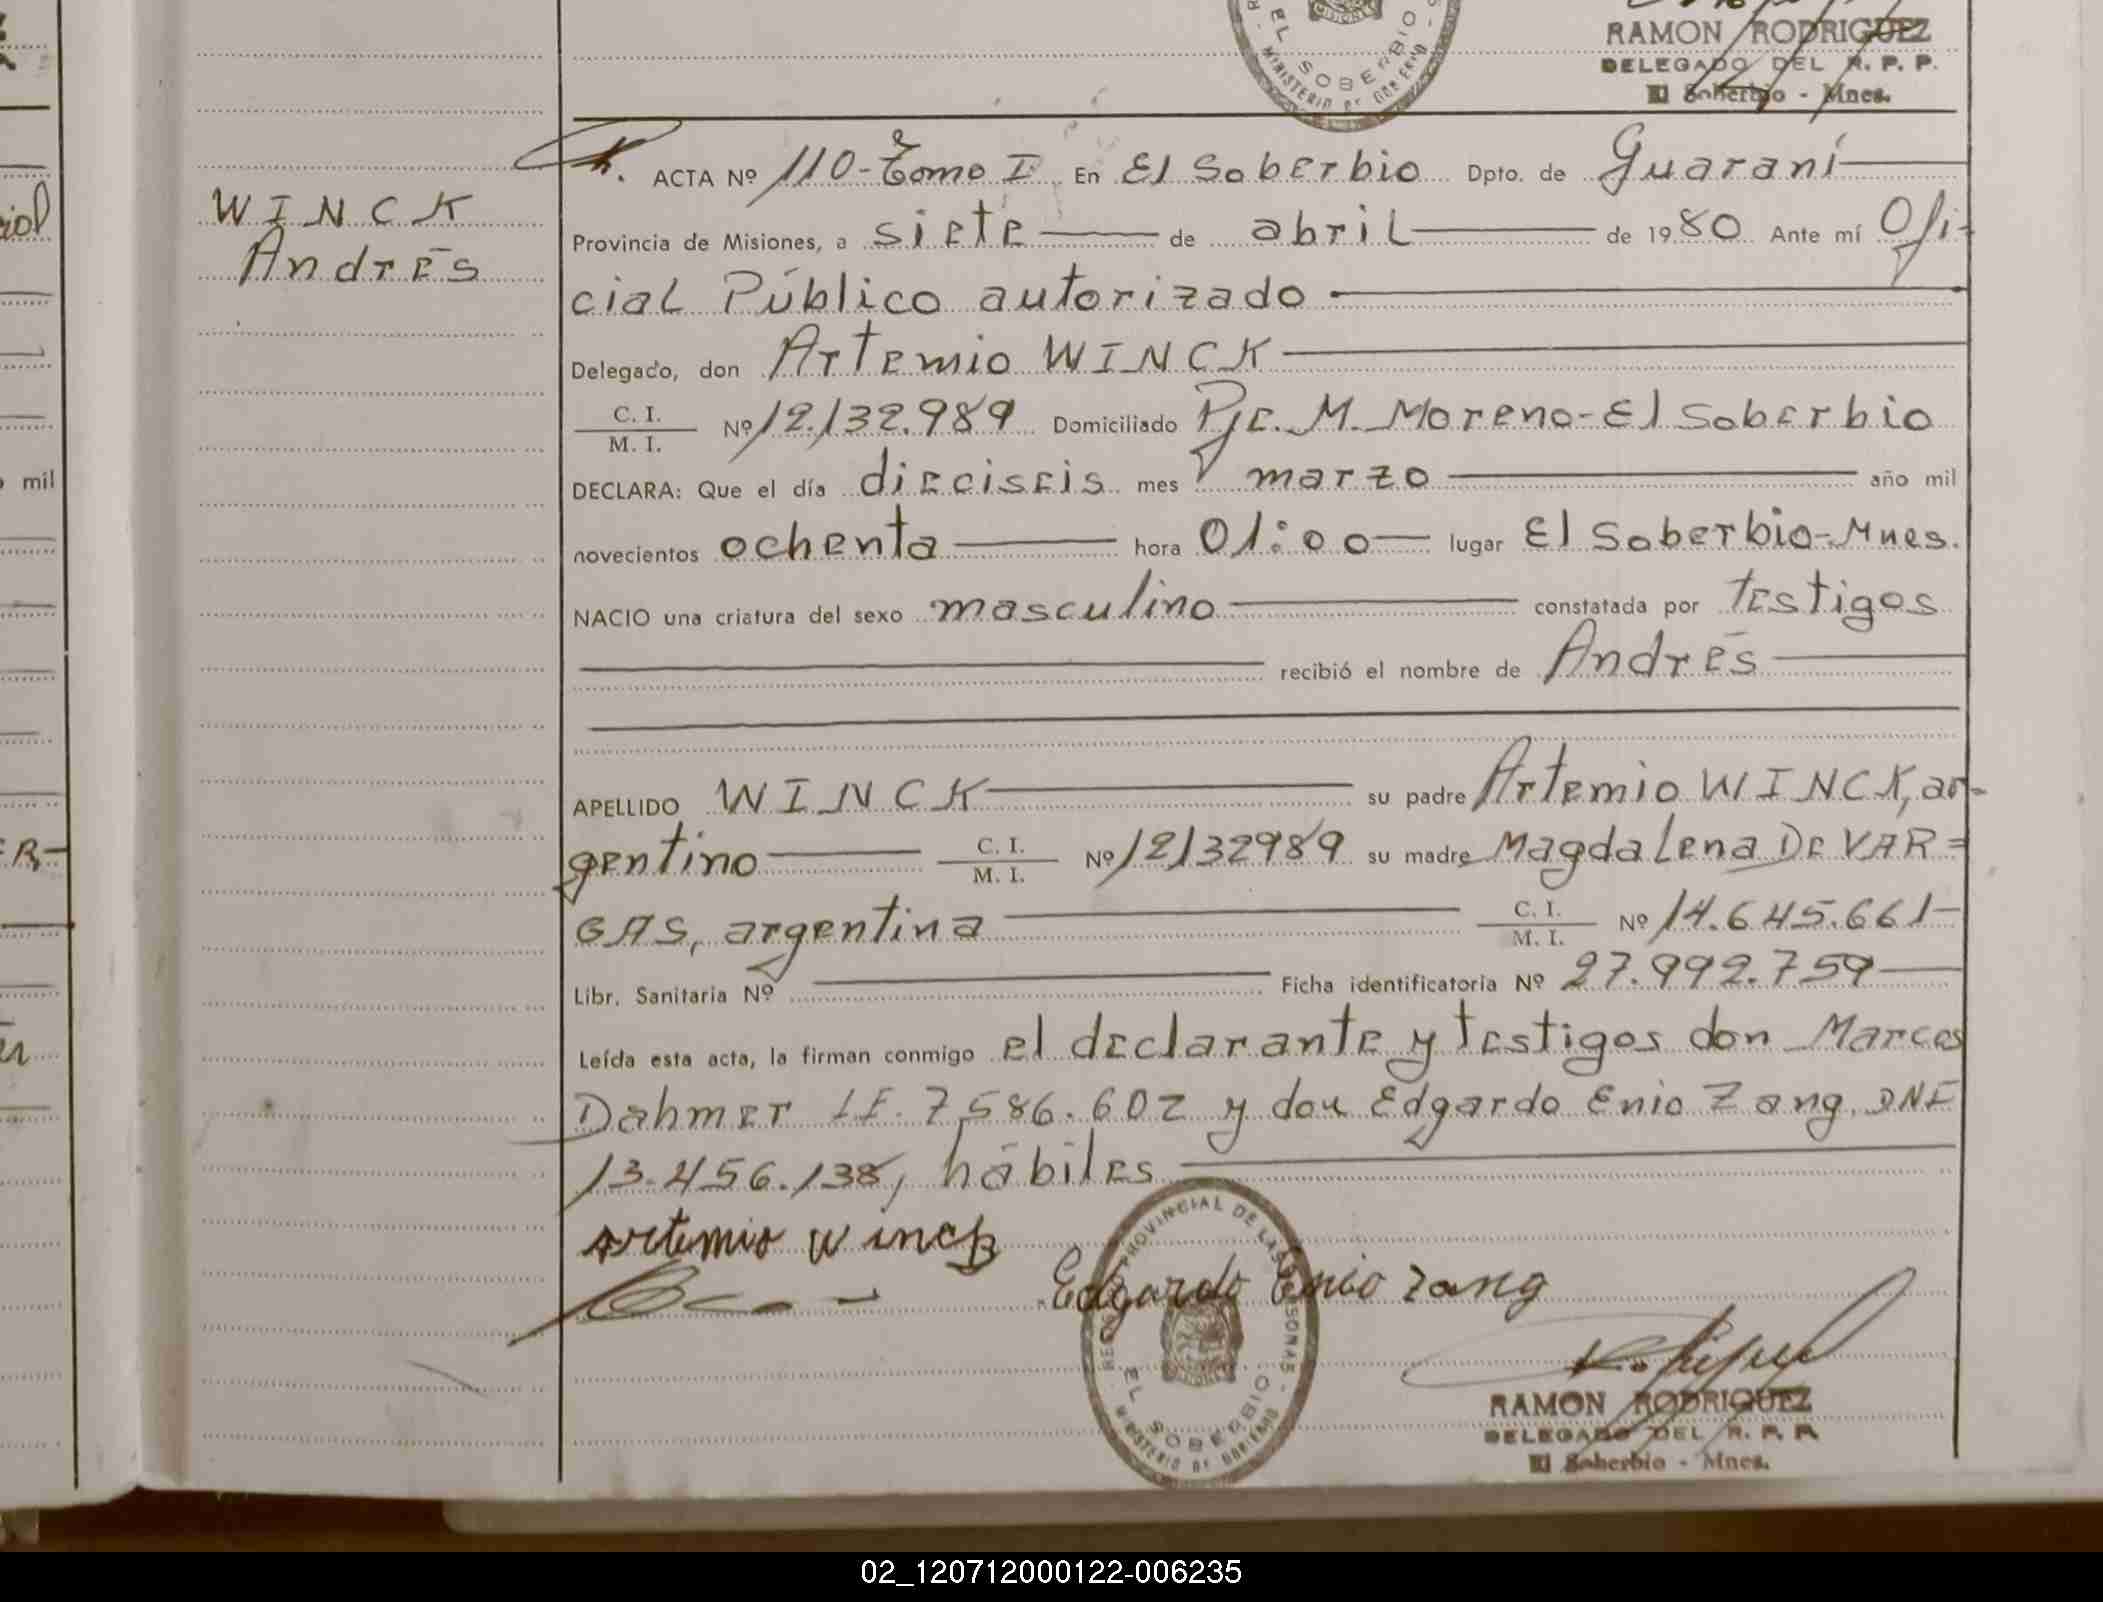 EL SOBERBIO
MINISTERIO DE GOBIERNO
RAMON RODRIGUEZ
DELEGADO DEL R. P. P.
El Soberbio - Mnes.
WINCK
Andrés
ACTA Nº 110-Tomo I En El Soberbio Dpto. de Guaraní
Provincia de Misiones, a siete de abril de 1980 Ante mí Ofi-
cial Público autorizado
Delegado, don Artemio WINCK
C. I.
M. I. Nº 12.132.989 Domiciliado Pje. M. Moreno-El Soberbio
DECLARA: Que el día dieciseis mes marzo año mil
novecientos ochenta hora 01:00 lugar El Soberbio-Mnes.
NACIO una criatura del sexo masculino constatada por testigos
recibió el nombre de Andrés
APELLIDO WINCK su padre Artemio WINCK, ar-
gentino C. I. M. I. Nº 12132989 su madre Magdalena De VAR=
GAS, argentina C. I. M. I. Nº 14.645.661
Libr. Sanitaria Nº Ficha identificatoria Nº 27.992.759
Leída esta acta, la firman conmigo el declarante y testigos don Marcos
Dahmer LE. 7.586.602 y don Edgardo Enio Zang DNI
13.456.138, hábiles
Artemio Winck
Edgardo Enio Zang
REG. PROVINCIAL DE LAS PERSONAS
EL SOBERBIO
MINISTERIO DE GOBIERNO
RAMON RODRIGUEZ
DELEGADO DEL R. P. P.
El Soberbio - Mnes.
mil
02_120712000122-006235